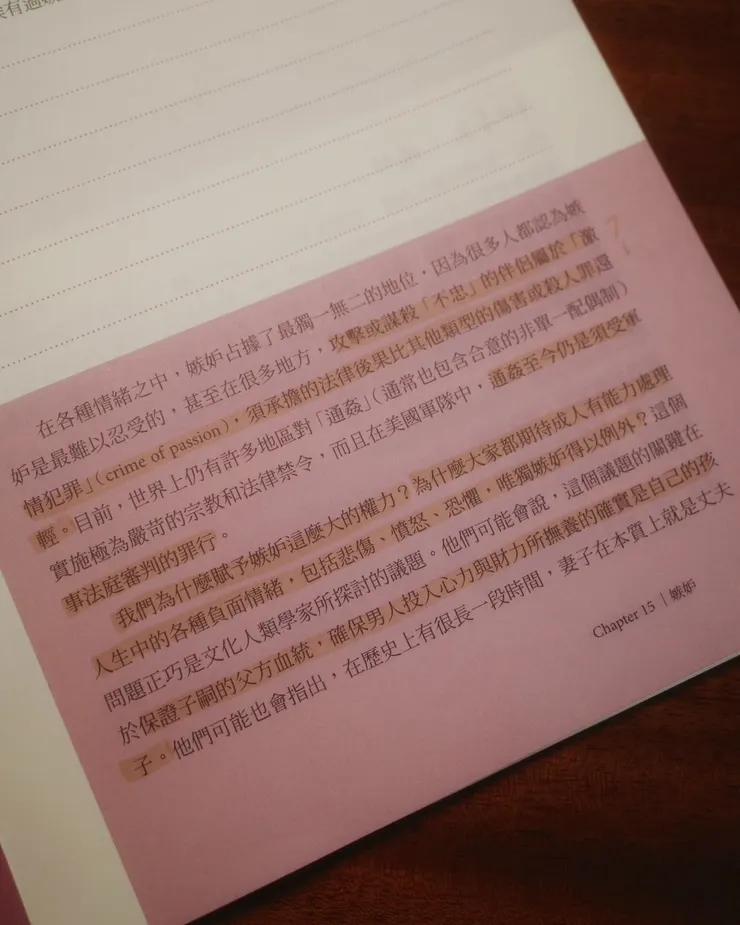 有過
在各種情緒之中，嫉妒占據了最獨一無二的地位，因為很多人都認為嫉
妒是最難以忍受的，甚至在很多地方，攻擊或謀殺「不忠」的伴侶屬於「激
情犯罪」（crime of passion），須承擔的法律後果比其他類型的傷害或殺人罪還
輕。目前，世界上仍有許多地區對「通姦」（通常也包含合意的非單一配偶制）
實施極為嚴苛的宗教和法律禁令，而且在美國軍隊中，通姦至今仍是須受軍
事法庭審判的罪行。
我們為什麼賦予嫉妒這麼大的權力？為什麼大家都期待成人有能力處理
人生中的各種負面情緒，包括悲傷、憤怒、恐懼，唯獨嫉妒得以例外？這個
問題正巧是文化人類學家所探討的議題。他們可能會說，這個議題的關鍵在
於保證子嗣的父方血統，確保男人投入心力與財力所撫養的確實是自己的孩
子。他們可能也會指出，在歷史上有很長一段時間，妻子在本質上就是丈夫
Chapter 15｜嫉妒